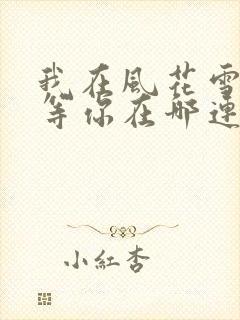 我在風花雪
等你在那連
小紅杏